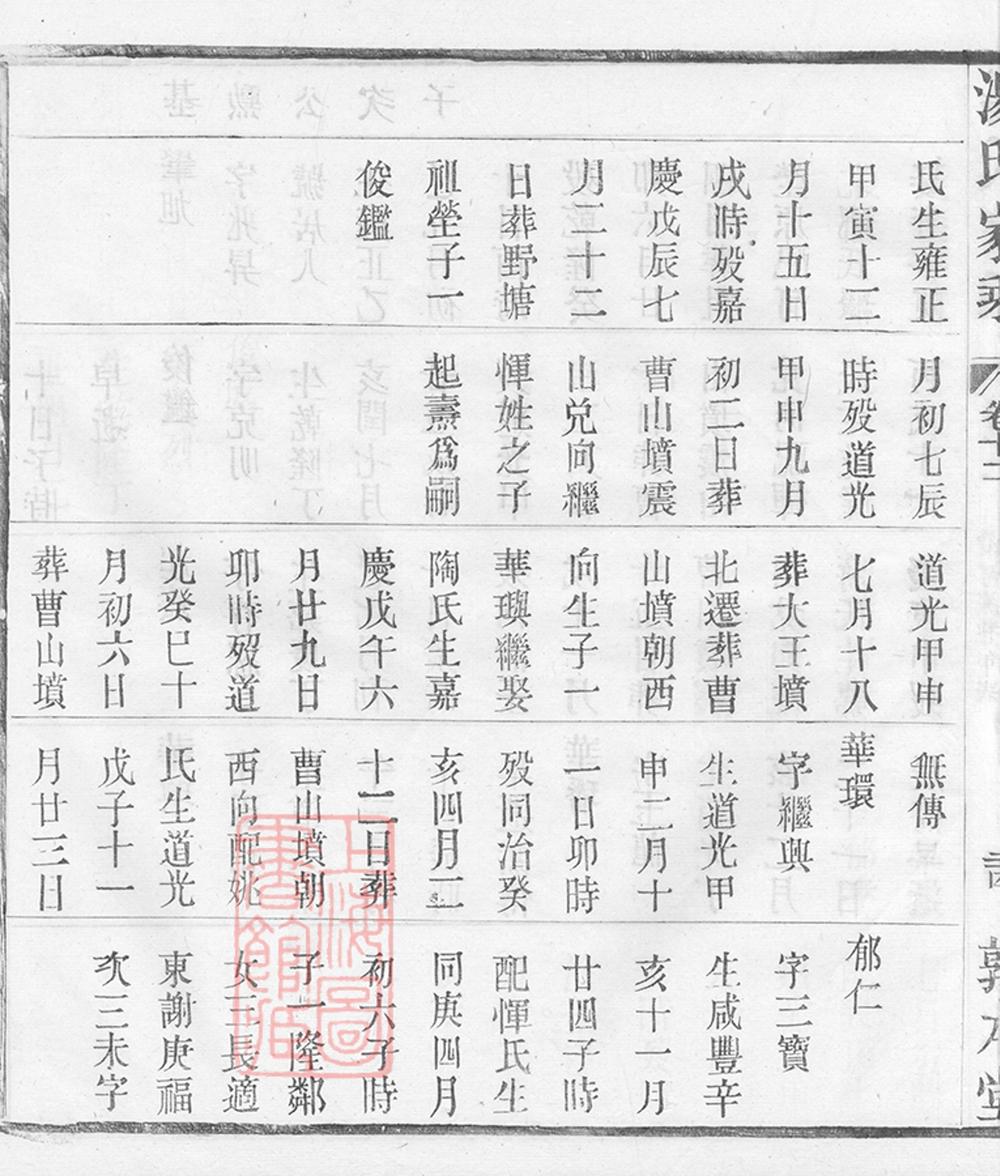 氏生雍正
甲寅十二
月十五日
戌時歿嘉
慶戊辰七
月二十二
日葬野塘
祖塋子一
俊鑑
月初七辰
時歿道光
甲申九月
初二日葬
曹山墳震
山兑向繼
惲姓之子
起壽爲嗣
道光甲申
七月十八
葬大王墳
北遷葬曹
山墳朝西
向生子一
華璵繼娶
陶氏生嘉
慶戊午六
月廿九日
卯時歿道
光癸巳十
月初六日
葬曹山墳
無傳
華環
字繼興
生道光甲
申二月十
一日卯時
歿同治癸
亥四月二
十二日葬
曹山墳朝
西向配姚
氏生道光
戊子十一
月廿三日
郁仁
字三寶
生咸豐辛
亥十一月
廿四子時
配惲氏生
同庚四月
初六子時
子一隆鄰
女三長適
東謝庚福
次三未字